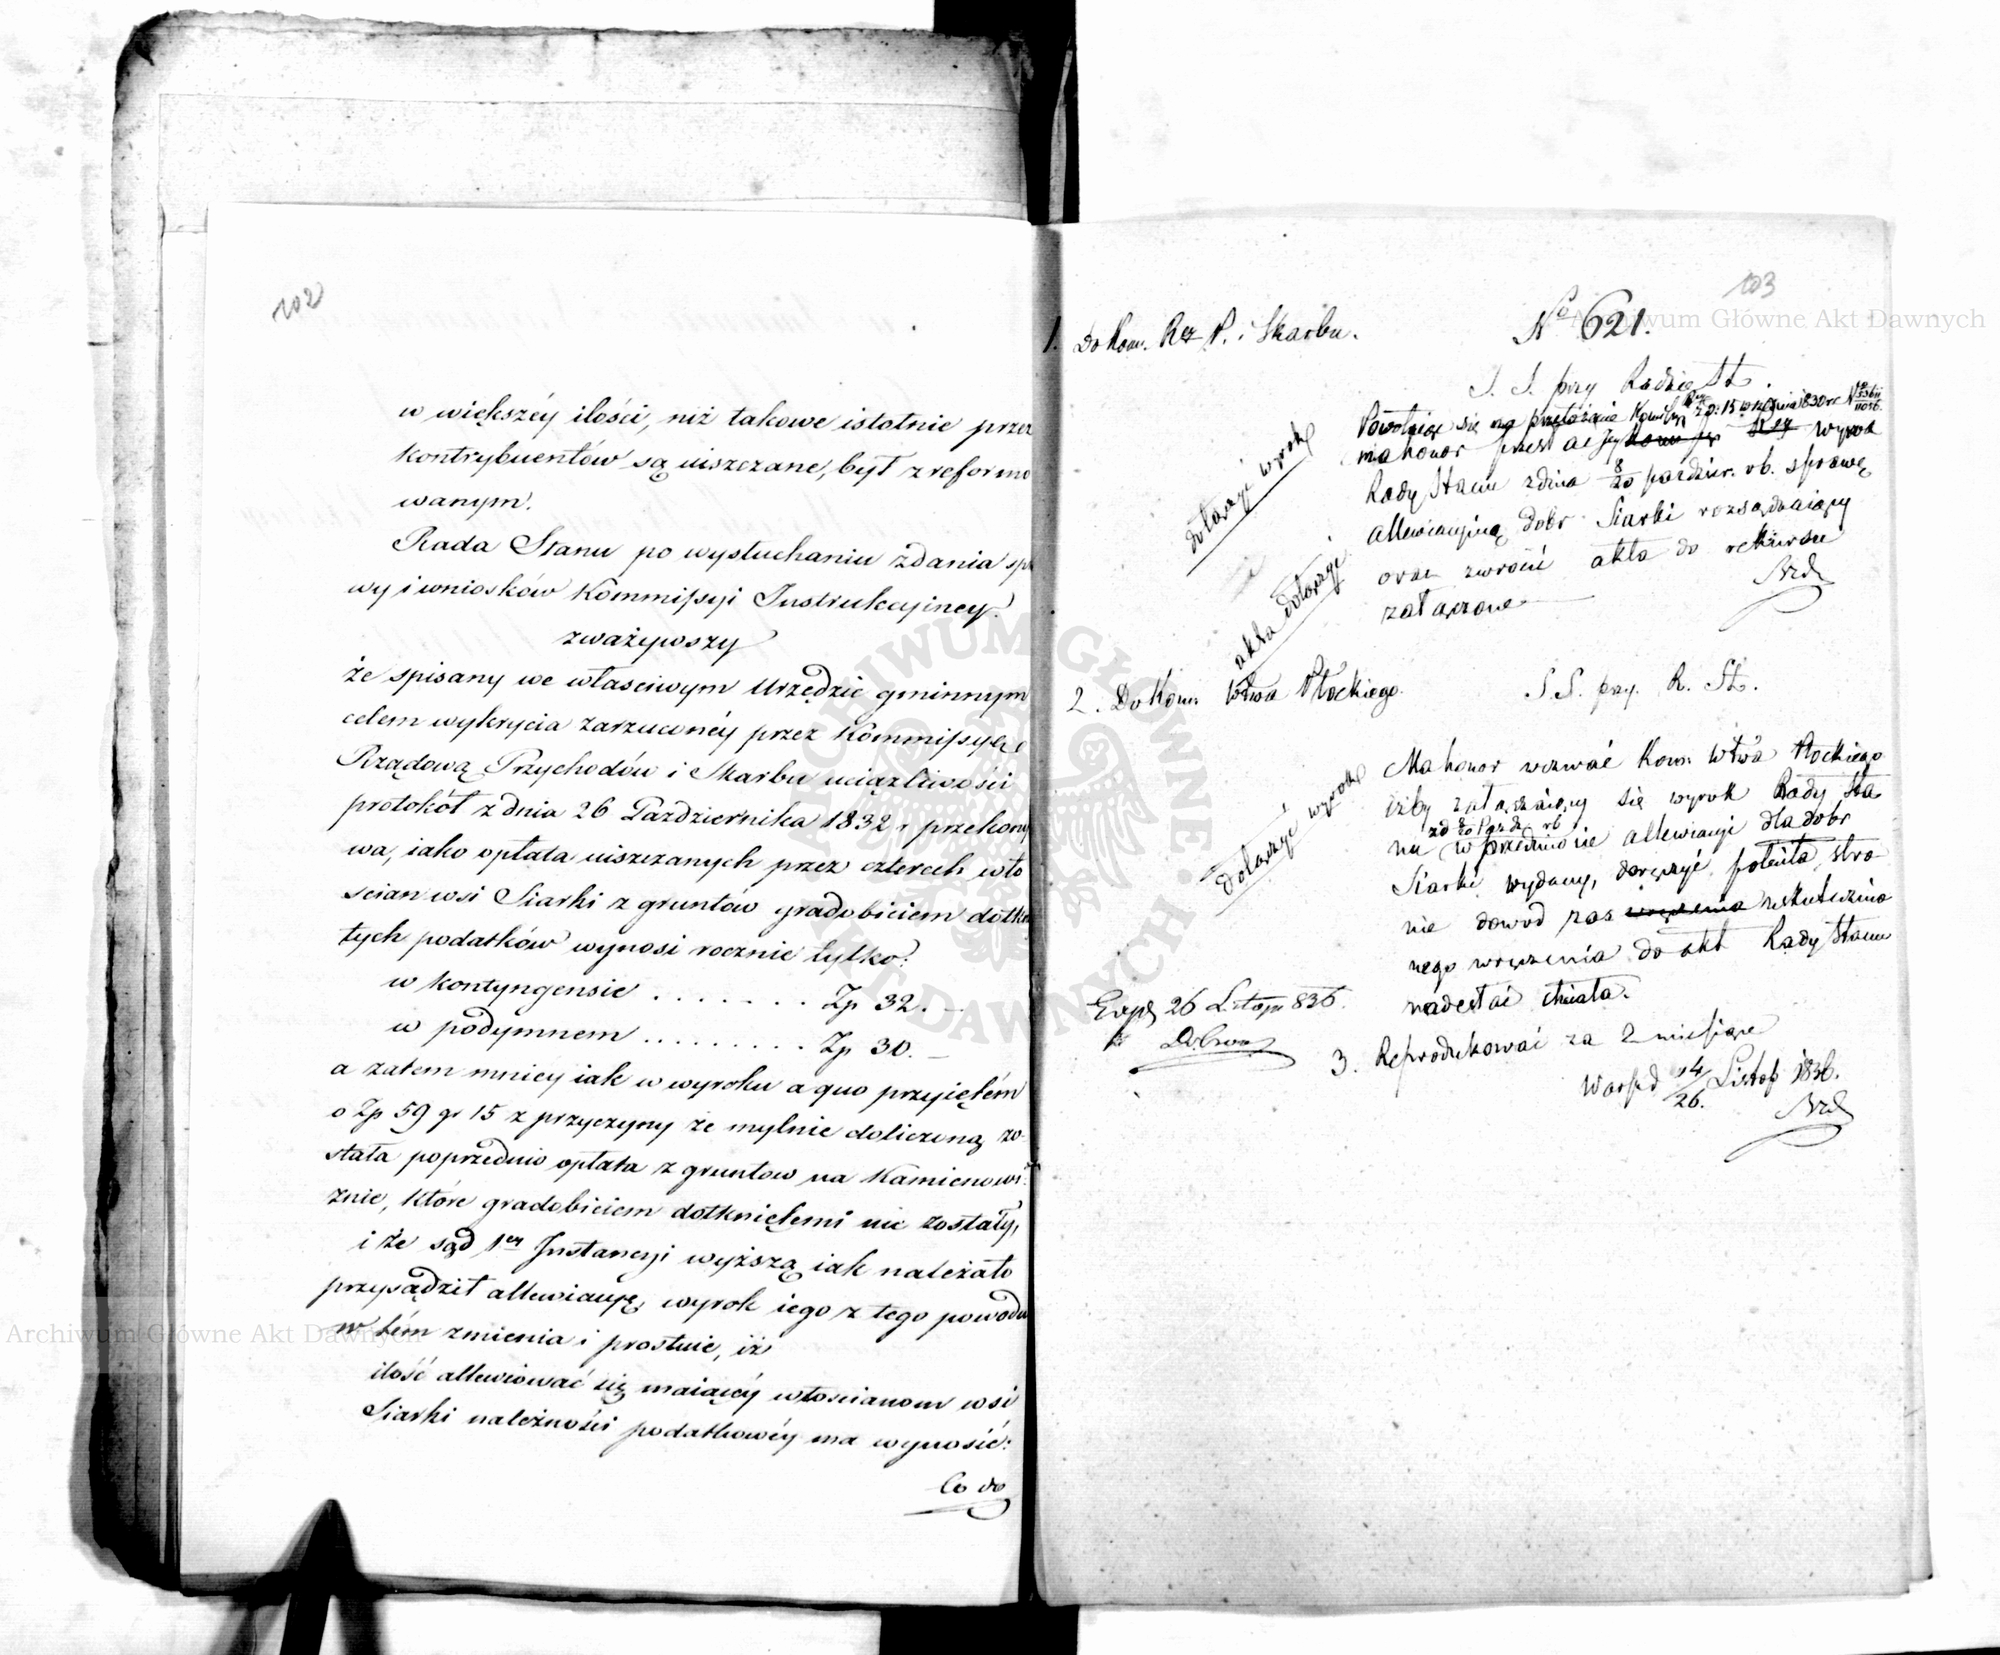 102
w większéy ilości, niż takowe istotnie przez
kontrybuentów są uiszczane, był zreformo
wanym.
Rada Stanu po wysłuchaniu zdania spra
wy i wniosków Kommissyi Instrukcyiney.
zważywszy
że spisany we właściwym Urzędzie gminnym
celem wykrycia zarzuconéy przez Kommissyę
Rządową Przychodów i Skarbu uciążliwości
protokół z dnia 26 Października 1832 r przekony
wa, iako opłata uiszczanych przez czterech wło
ścian wsi Siarki z gruntów gradobiciem dotknię
tych podatków wynosi rocznie tylko:
w kontyngensie . . . . . . . Zp 32. —
w podymnem . . . . . . . . . Zp 30. —
a zatem mniey iak w wyroku a quo przyiętém
o Zp 59 gr 15 z przyczyny że mylnie doliczoną zo-
stała poprzednio opłata z gruntow na Kamienowi-
znie, które gradobiciem dotkniętemi nie zostały,
i że sąd 1ey Instancyi wyższą iak należało
przysądził allewiacyę, wyrok iego z tego powodu
w tém zmienia i prostuie, iż
ilość allewiować się maiącéy włościanom wsi
Siarki należności podatkowéy ma wynosić:
Co do
103
No 621.
1. Do Kom. Rz P. i Skarbu.
S. S. przy Radzie St.
Powołuiąc się na przełożenie Komissyi Rz z d: 15 Września 1830 r N
ma honor przesłać jey wyrok
Rady Stanu z dnia 8/20 paździer. rb. sprawę
allewiacyiną dobr Siarki rozsądzaiący
oraz zwrócić akta do rekursu
załączone
dołączyć wyrok
akta dołączyć
2. Do Kom. Wtwa Płockiego.
S S. przy. R. St.
Ma honor wezwać Kom. Wtwa Płockiego
iżby załączaiący się wyrok Rady Sta
nu z d 8/20 Paźdz rb w przedmiocie allewiacyi dla dobr
Siarki wydany, doręczyć poleciła stro
nie dowod zas wręczenia uskutecznio
nego wręczenia do akt Rady Stanu
nadesłać chciała.
dołączyć wyrok
Exp 26 Listop 836.
3. Reprodukować za 2 miesiące
Warsz d 14/26. Listop 1836.
Archiwum Główne Akt Dawnych
Archiwum Główne Akt Dawnych
ARCHIWUM GŁÓWNE AKT DAWNYCH